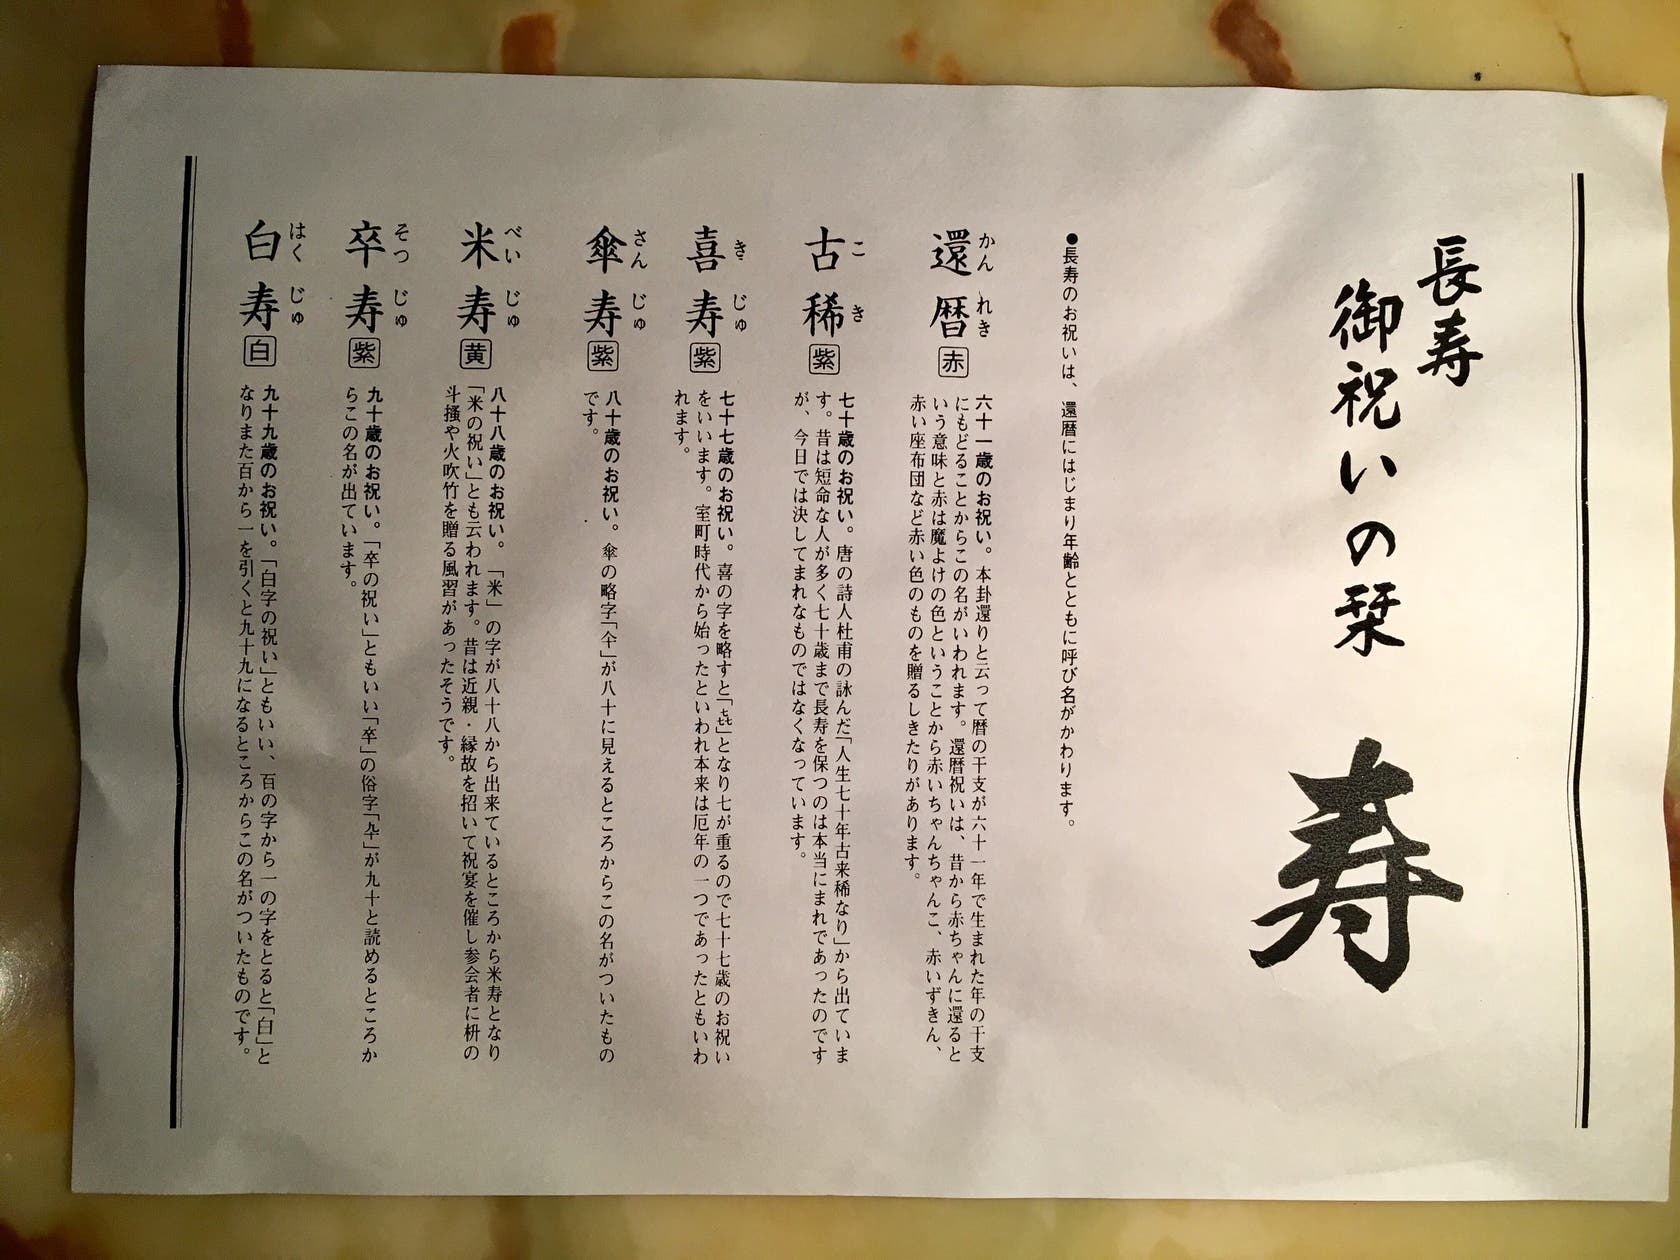 長寿
御祝いの栞
寿
●長寿のお祝いは、還暦にはじまり年齢とともに呼び名がかわります。
かんれき
還暦 赤
六十一歳のお祝い。本卦還りと云って暦の干支が六十一年で生まれた年の干支
にもどることからこの名がいわれます。還暦祝いは、昔から赤ちゃんに還ると
いう意味と赤は魔よけの色ということから赤いちゃんちゃんこ、赤いずきん、
赤い座布団など赤い色のものを贈るしきたりがあります。
こき
古稀 紫
七十歳のお祝い。唐の詩人杜甫の詠んだ「人生七十年古来稀なり」から出ていま
す。昔は短命な人が多く七十歳まで長寿を保つのは本当にまれであったのです
が、今日では決してまれなものではなくなっています。
きじゅ
喜寿 紫
七十七歳のお祝い。喜の字を略すと「㐂」となり七が重るので七十七歳のお祝い
をいいます。室町時代から始ったといわれ本来は厄年の一つであったともいわ
れます。
さんじゅ
傘寿 紫
八十歳のお祝い。傘の略字「仐」が八十に見えるところからこの名がついたもの
です。
べいじゅ
米寿 黄
八十八歳のお祝い。「米」の字が八十八から出来ているところから米寿となり
「米の祝い」とも云われます。昔は近親・縁故を招いて祝宴を催し参会者に枡の
斗掻や火吹竹を贈る風習があったそうです。
そつじゅ
卒寿 紫
九十歳のお祝い。「卒の祝い」ともいい「卒」の俗字「卆」が九十と読めるところか
らこの名が出ています。
はくじゅ
白寿 白
九十九歳のお祝い。「白字の祝い」ともいい、百の字から一の字をとると「白」と
なりまた百から一を引くと九十九になるところからこの名がついたものです。